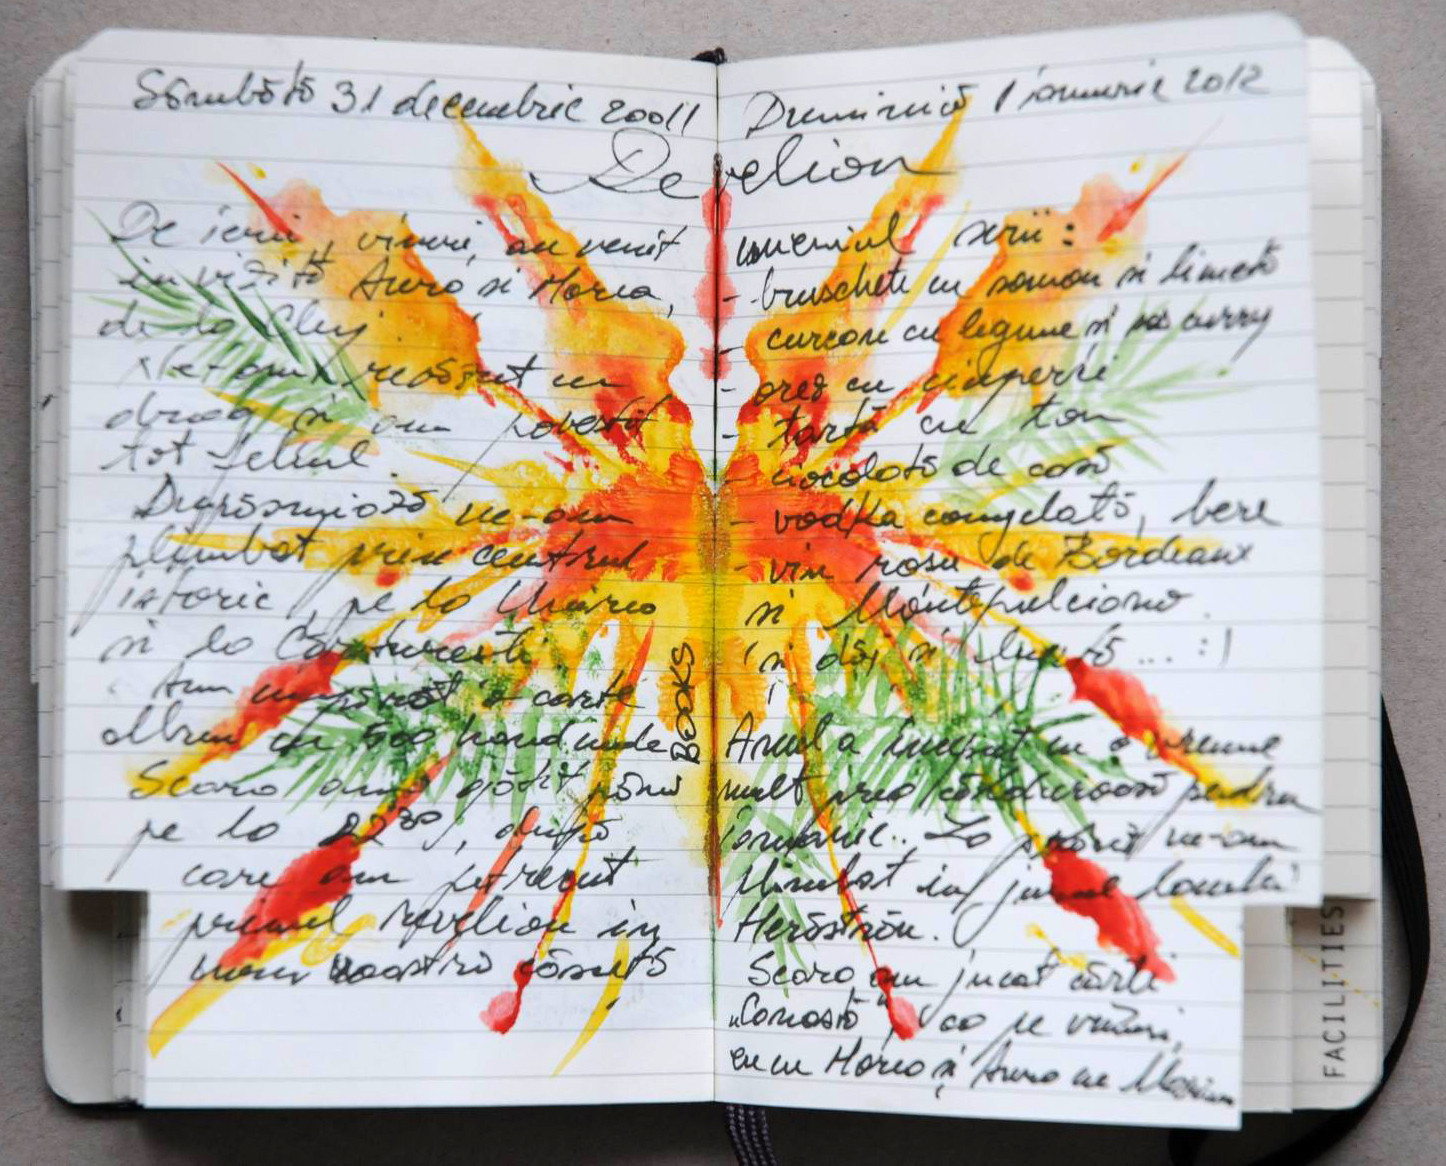 Sâmbătă 31 decembrie 20011
Revelion
De ieri, vineri, au venit
în vizită Aura și Horea,
de la Cluj.
Ne-am reașezat cu
drag și am povestit
tot felul.
După-amiază ne-am
plimbat prin centrul
istoric, pe la Unirea
și la Cărturești.
Am cumpărat o carte
album cu 500 handmade
BOOKS
Seara am gătit până
pe la 22³⁰, după
care am petrecut
primul revelion în
noua noastră căsuță
Duminică 1 ianuarie 2012
meniul serii:
- bruschete cu somon și limetă
- curcan cu legume și curry
- orez cu ciuperci
- tartă cu ton
- ciocolată de casă
- vodka congelată, bere
- vin roșu de Bordeaux
și Montepulciano.
și
Anul a început cu o vreme
mult prea călduroasă pentru
ianuarie.. La prânz ne-am
plimbat în jurul lacului
Herăstrău.
Seara am jucat cărți
„Canastă", ca pe vremuri,
eu cu Horea și Aura cu
FACILITIES